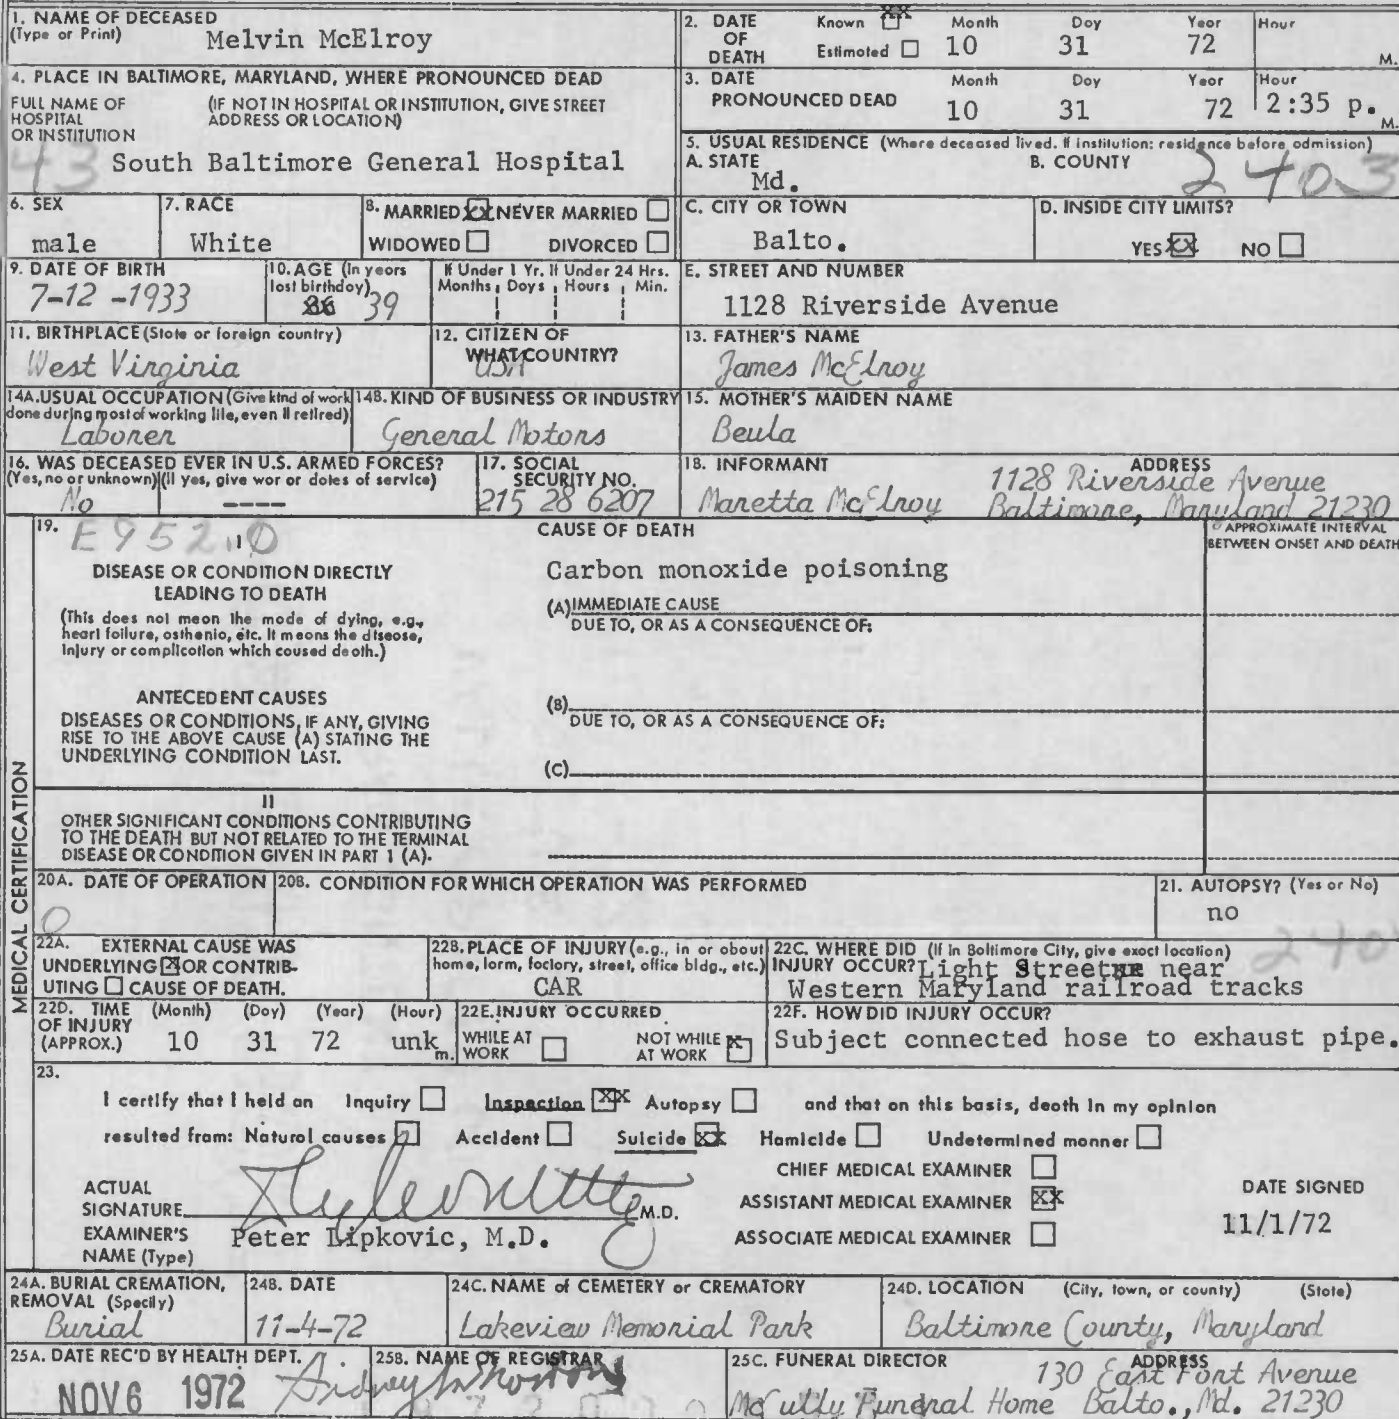 1. NAME OF DECEASED
(Type or Print) Melvin McElroy
2. DATE OF DEATH Known XX Estimated Month 10 Day 31 Year 72 Hour M.
4. PLACE IN BALTIMORE, MARYLAND, WHERE PRONOUNCED DEAD
FULL NAME OF HOSPITAL OR INSTITUTION (IF NOT IN HOSPITAL OR INSTITUTION, GIVE STREET ADDRESS OR LOCATION)
43 South Baltimore General Hospital
3. DATE PRONOUNCED DEAD Month 10 Day 31 Year 72 Hour 2:35 p. M.
5. USUAL RESIDENCE (Where deceased lived. If institution: residence before admission)
A. STATE Md. B. COUNTY 2403
6. SEX male 7. RACE White 8. MARRIED XX NEVER MARRIED WIDOWED DIVORCED
C. CITY OR TOWN Balto. D. INSIDE CITY LIMITS? YES XX NO
9. DATE OF BIRTH 7-12-1933 10. AGE (In years last birthday) 36 39 If Under 1 Yr. Months Days If Under 24 Hrs. Hours Min.
E. STREET AND NUMBER 1128 Riverside Avenue
11. BIRTHPLACE (State or foreign country) West Virginia 12. CITIZEN OF WHAT COUNTRY? USA
13. FATHER'S NAME James McElroy
14A. USUAL OCCUPATION (Give kind of work done during most of working life, even if retired) Laborer 14B. KIND OF BUSINESS OR INDUSTRY General Motors
15. MOTHER'S MAIDEN NAME Beula
16. WAS DECEASED EVER IN U.S. ARMED FORCES? (Yes, no or unknown) (If yes, give war or dates of service) No ----
17. SOCIAL SECURITY NO. 215 28 6207
18. INFORMANT Maretta McElroy ADDRESS 1128 Riverside Avenue Baltimore, Maryland 21230
MEDICAL CERTIFICATION
19. E952.0 CAUSE OF DEATH APPROXIMATE INTERVAL BETWEEN ONSET AND DEATH
I
DISEASE OR CONDITION DIRECTLY LEADING TO DEATH Carbon monoxide poisoning
(This does not mean the mode of dying, e.g., heart failure, asthenia, etc. It means the disease, injury or complication which caused death.)
(A) IMMEDIATE CAUSE
DUE TO, OR AS A CONSEQUENCE OF:
ANTECEDENT CAUSES
DISEASES OR CONDITIONS, IF ANY, GIVING RISE TO THE ABOVE CAUSE (A) STATING THE UNDERLYING CONDITION LAST.
(B)
DUE TO, OR AS A CONSEQUENCE OF:
(C)
II
OTHER SIGNIFICANT CONDITIONS CONTRIBUTING TO THE DEATH BUT NOT RELATED TO THE TERMINAL DISEASE OR CONDITION GIVEN IN PART 1 (A).
20A. DATE OF OPERATION 0 20B. CONDITION FOR WHICH OPERATION WAS PERFORMED 21. AUTOPSY? (Yes or No) no
22A. EXTERNAL CAUSE WAS UNDERLYING X OR CONTRIBUTING CAUSE OF DEATH.
22B. PLACE OF INJURY (e.g., in or about home, farm, factory, street, office bldg., etc.) CAR
22C. WHERE DID INJURY OCCUR? (If in Baltimore City, give exact location) Light Street near Western Maryland railroad tracks 240
22D. TIME OF INJURY (APPROX.) (Month) 10 (Day) 31 (Year) 72 (Hour) unk m.
22E. INJURY OCCURRED WHILE AT WORK NOT WHILE AT WORK X
22F. HOW DID INJURY OCCUR? Subject connected hose to exhaust pipe.
23.
I certify that I held an Inquiry Inspection XX Autopsy and that on this basis, death in my opinion
resulted from: Natural causes Accident Suicide XX Homicide Undetermined manner
CHIEF MEDICAL EXAMINER
ACTUAL SIGNATURE M.D. ASSISTANT MEDICAL EXAMINER XX DATE SIGNED 11/1/72
EXAMINER'S NAME (Type) Peter Lipkovic, M.D. ASSOCIATE MEDICAL EXAMINER
24A. BURIAL CREMATION, REMOVAL (Specify) Burial 24B. DATE 11-4-72 24C. NAME of CEMETERY or CREMATORY Lakeview Memorial Park 24D. LOCATION (City, town, or county) (State) Baltimore County, Maryland
25A. DATE REC'D BY HEALTH DEPT. NOV 6 1972 25B. NAME OF REGISTRAR
25C. FUNERAL DIRECTOR McCully Funeral Home ADDRESS 130 East Fort Avenue Balto., Md. 21230